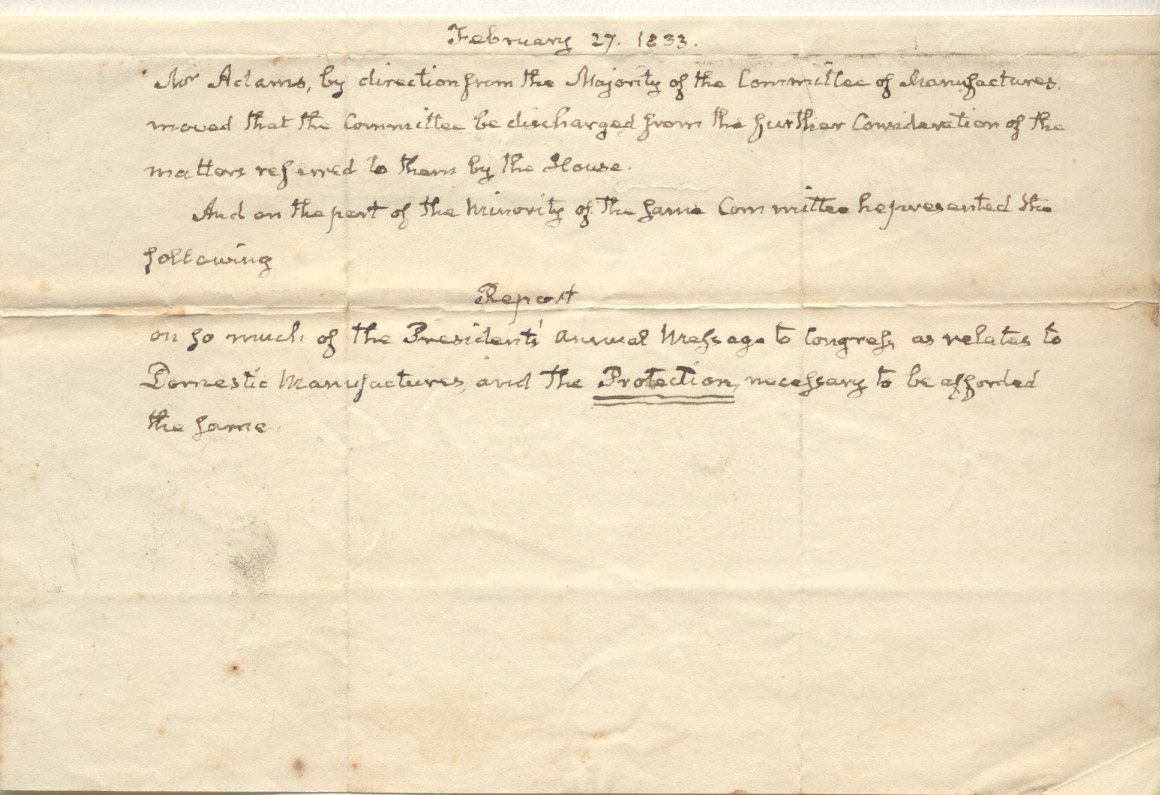 February 27. 1833.
Mr Adams, by direction from the Majority of the Committee of Manufactures,
moved that the Committee be discharged from the further Consideration of the
matters referred to them by the House.
And on the part of the Minority of the same Committee he presented the
following
Report
on so much of the Presidents' annual Message to Congress, as relates to
Domestic Manufactures, and the Protection, necessary to be afforded
the same.